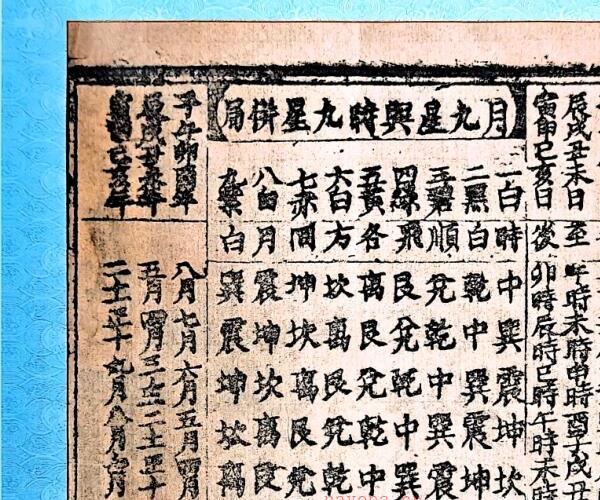 辰戌丑未日
至
午時未時申時酉子戌丑
寅申巳亥日
後
卯時辰時巳時午時未時
月九星與時九星拼局
一白時
中巽震坤坎
二黑白
乾中巽震坤
三碧順
兌乾中巽震
四綠飛
艮兌乾中巽
五黃各
离艮兌乾中
六白方
坎离艮兌乾
七赤間
坤坎离艮兌
八白月
震坤坎离艮
九紫白
巽震坤坎离
子午卯酉年
八月七月六月五月四月
辰戌丑未年
五月四月三十二二十一正十
巳亥年
二十一正十九月八月七月